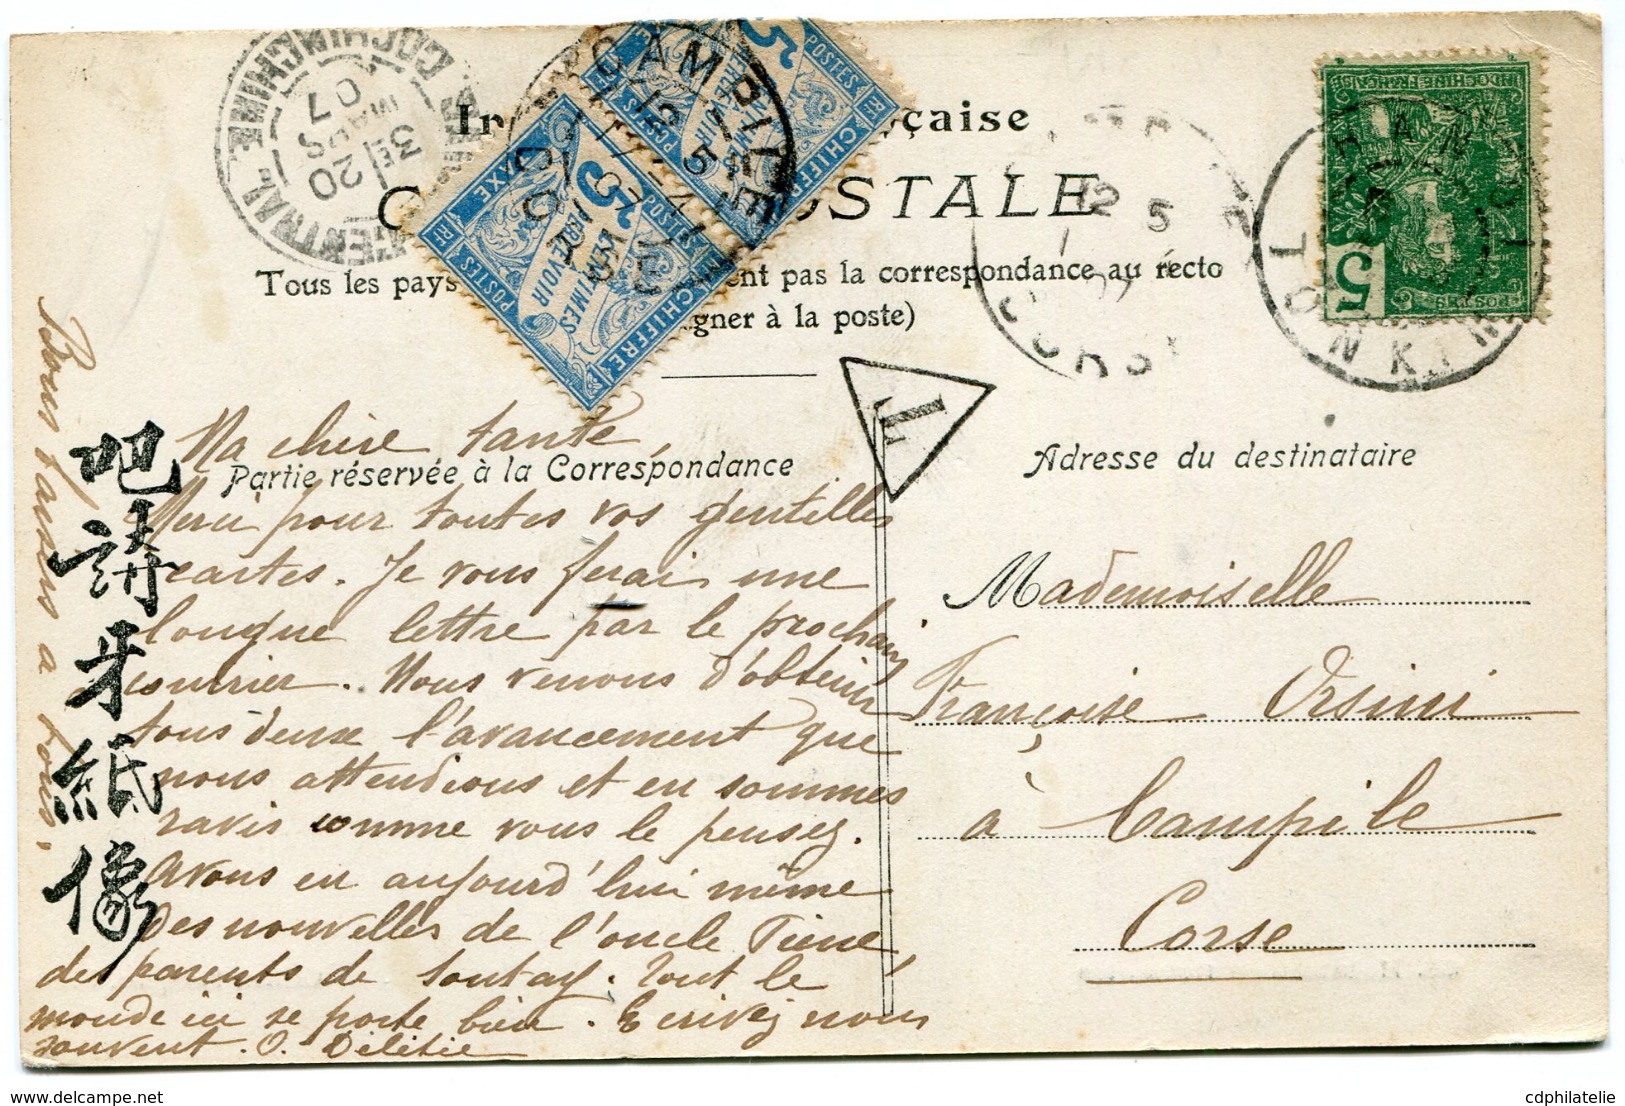 COCHINCHINE
20
3E
MARS
07
CAMPILE
CORSE
In çaise
C OSTALE
Tous les pays ent pas la correspondance au recto
gner à la poste)
CHIFFRE TAXE
POSTES
5 CENTIMES
À PERCEVOIR
RF
INDOCHINE FRANÇAISE
POSTES
5
12 5
CORSE
T
LONG
Ma chère tante,
Partie réservée à la Correspondance
Merci pour toutes vos gentilles
cartes. Je vous ferai une
longue lettre par le prochain
courrier. Nous venons d'obtenir
tous deux l'avancement que
nous attendions et en sommes
ravis comme vous le pensez.
Avons eu aujourd'hui même
des nouvelles de l'oncle
des parents de Sontay. Tout le
monde ici se porte bien. Ecrivez nous
souvent. O.
Bons baisers à tous,
吧
講
牙
紙
像
Adresse du destinataire
Mademoiselle
Françoise Orsini
à Campile
Corse
cdphilatelie